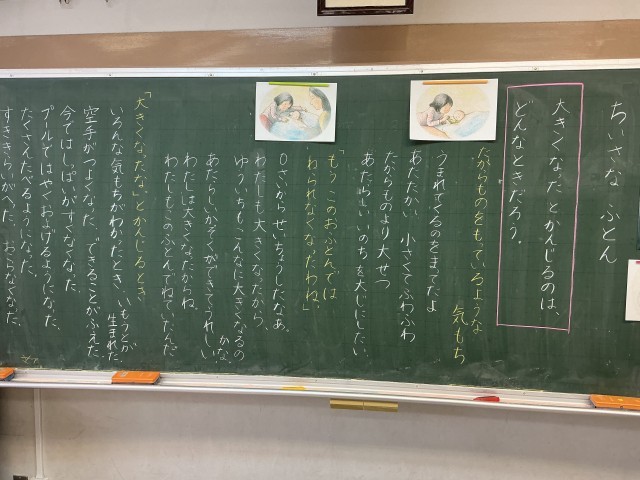 ちいさな ふとん
大きくなったとかんじるのは、
どんなときだろう。
たからものをもっているような
気もち
うまれてくるのをまってたよ
あたたかい 小さくてふわふわ
たからものより大せつ
あたらしいいのちを大じにしたい。
「もうこのおふとんでは
ねられなくなったわね。」
0さいからせいちょうしたなあ。
わたしも大きくなったから
ゆういちも、こんなに大きくなるの
かな。
あたらしいかぞくができてうれしい。
わたしは大きくなったからね。
わたしもこのふとんでねていたんだ
「大きくなったな」とかんじるとき
いろんな気もちがわかったとき。
いもうとが
生まれた。
空手がつよくなった。できることがふえた。
今ではしっぱいがすくなくなった。
プールではやくおよげるようになった。
たくさんたべれるようになった。
すききらいがへった。おこらなくなった。